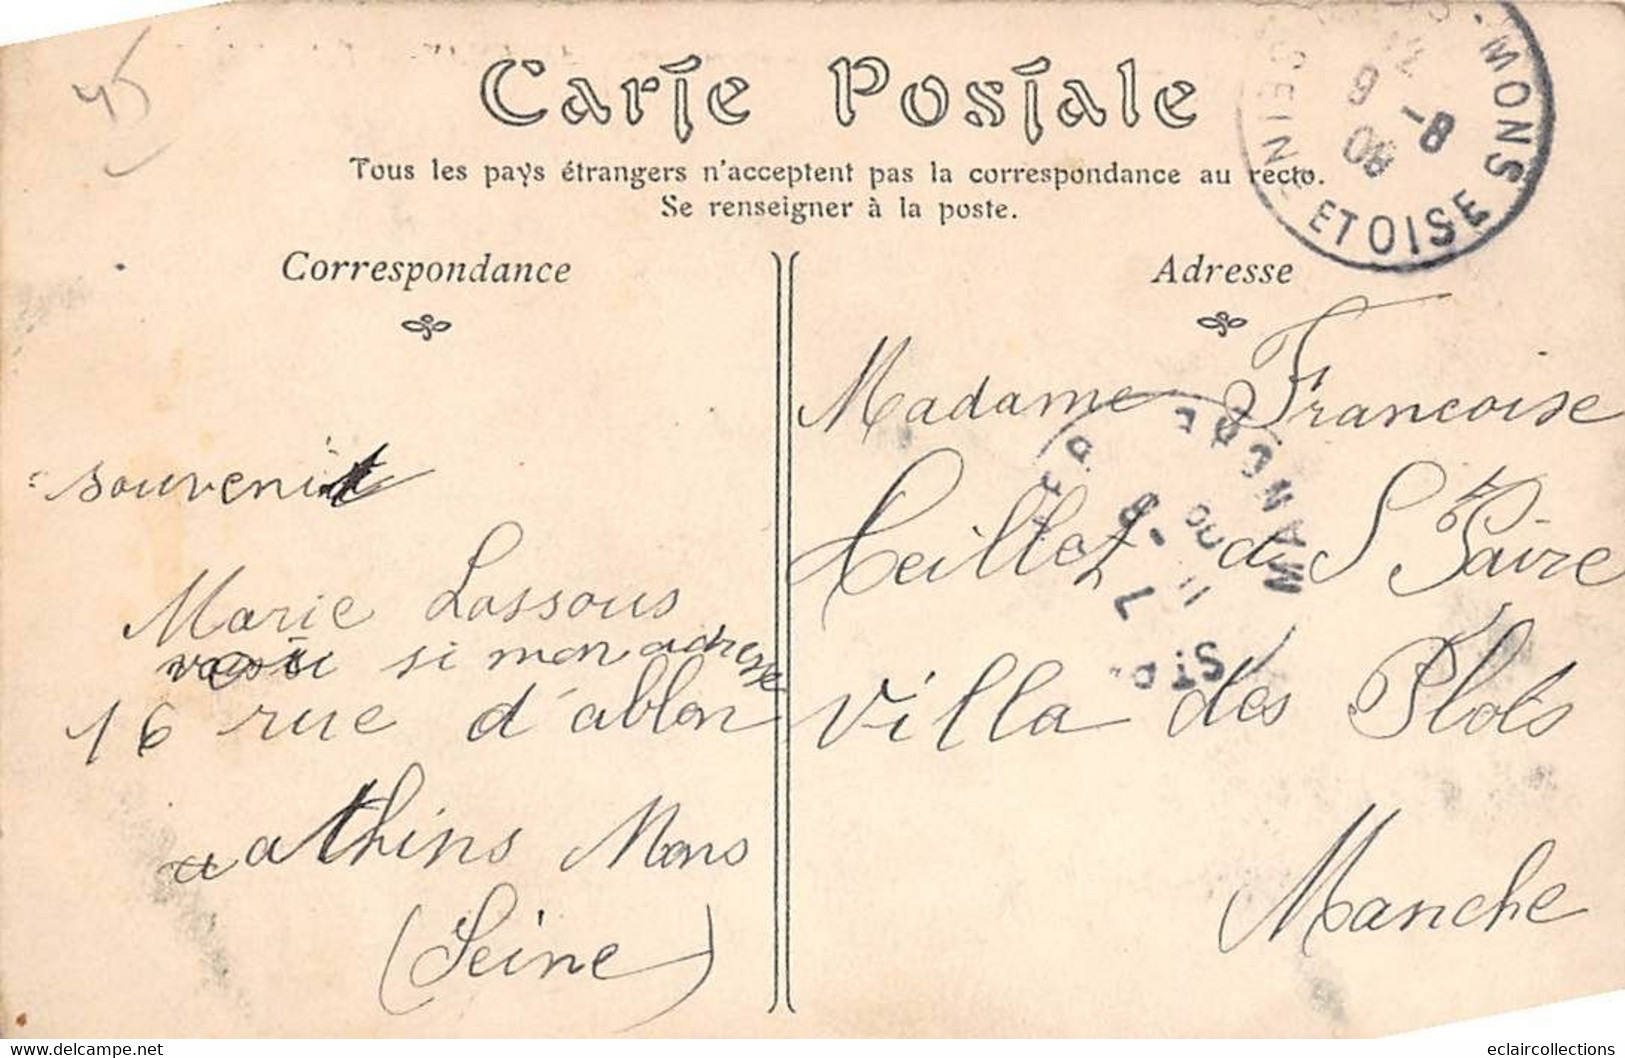 45
Carte Postale
Tous les pays étrangers n'acceptent pas la correspondance au recto.
Se renseigner à la poste.
MONS
SEINE ET OISE
9 -8
08
Correspondance
Adresse
souvenir
Marie Lassous
si mon adresse
16 rue d'ablon
a athins Mons
(Seine)
Madame Francoise
Heillet de St Paire
villa des Plots
Manche
ST P
MANCHE
11
eclaircollections